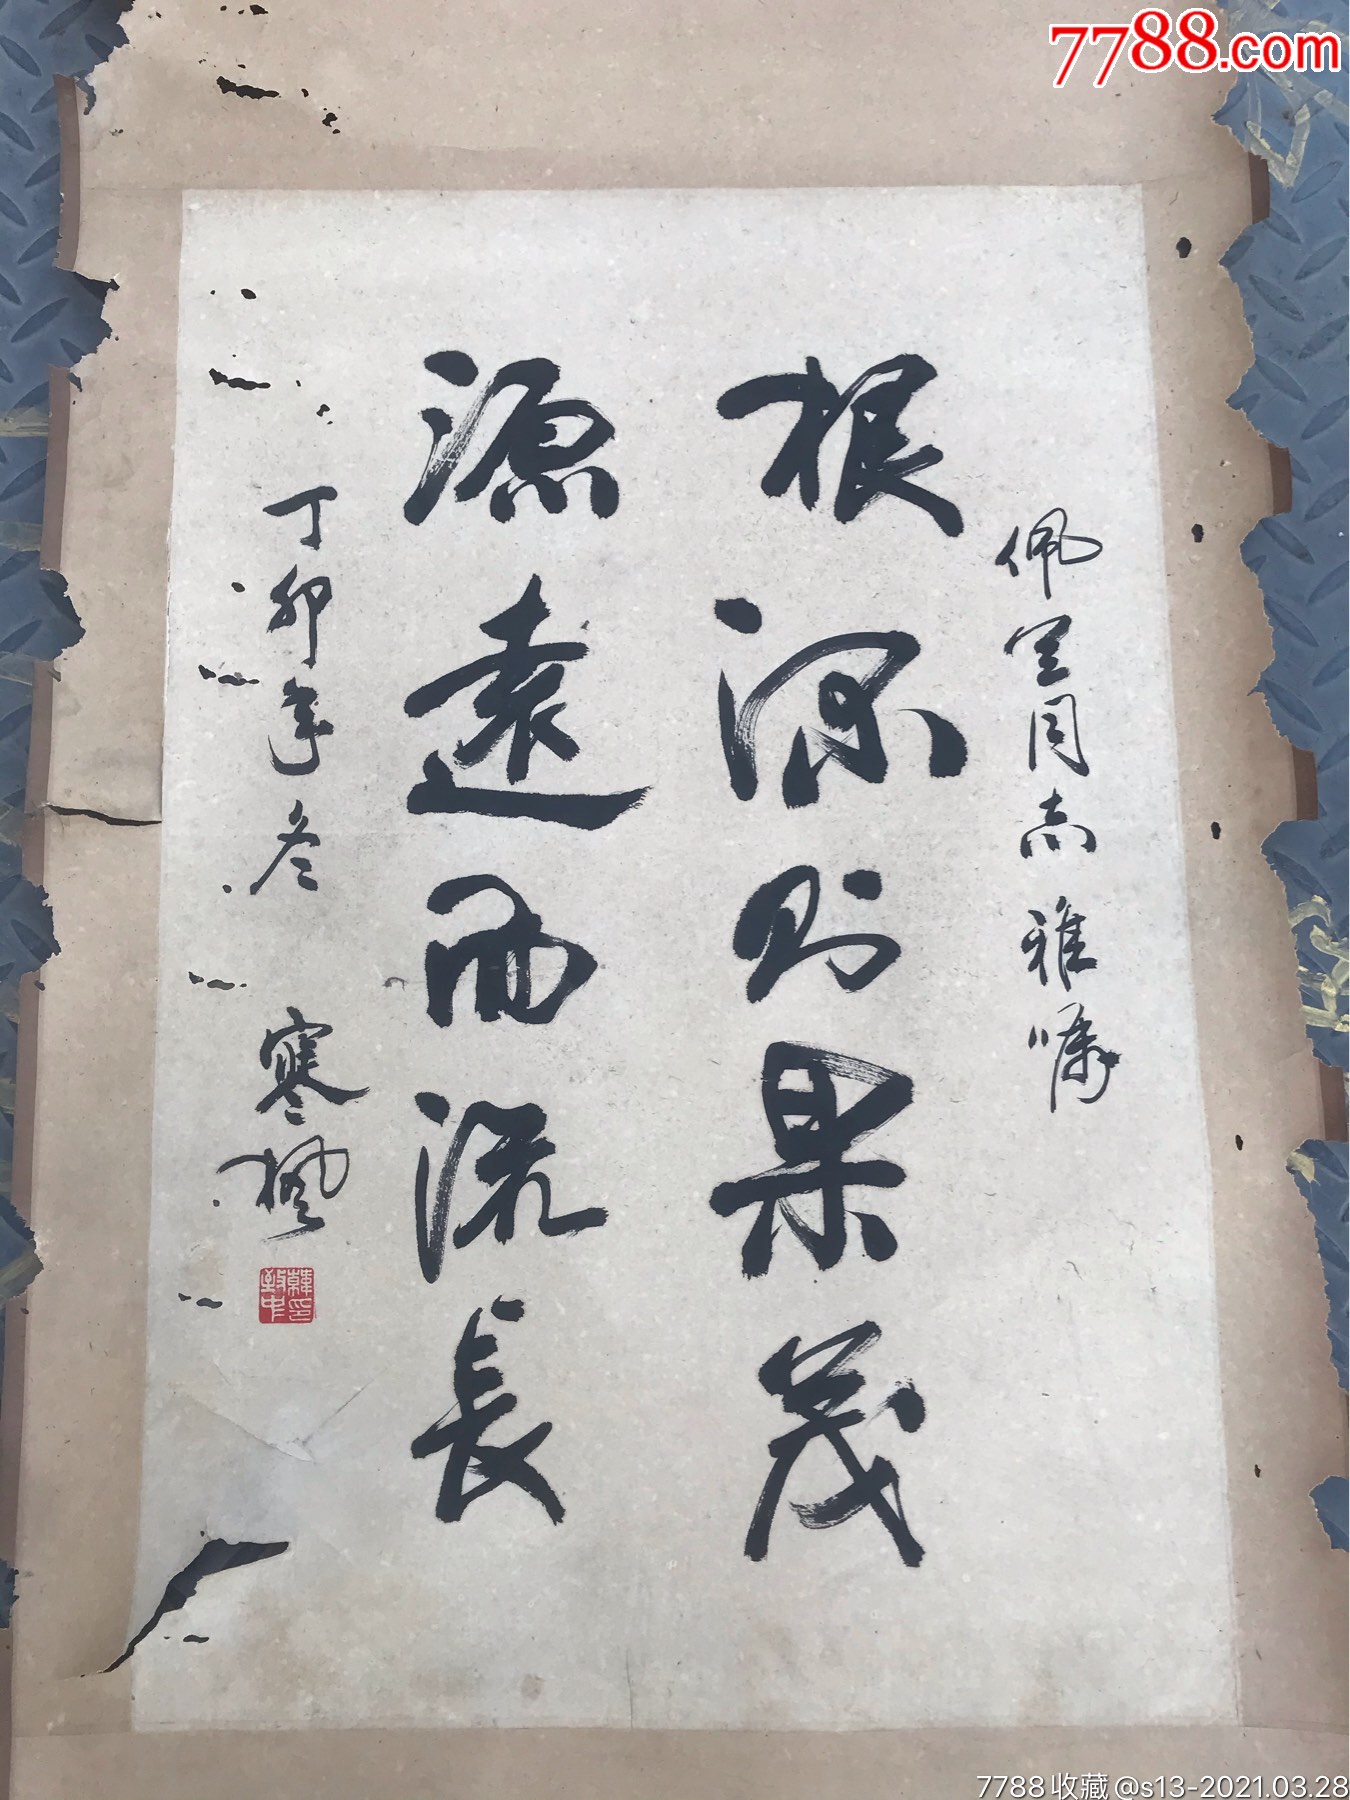 7788.com
佩同志雅嘱
根深则果茂
源遠而流長
丁卯年冬 寒枫
韓印致中
7788收藏 @s13-2021.03.28